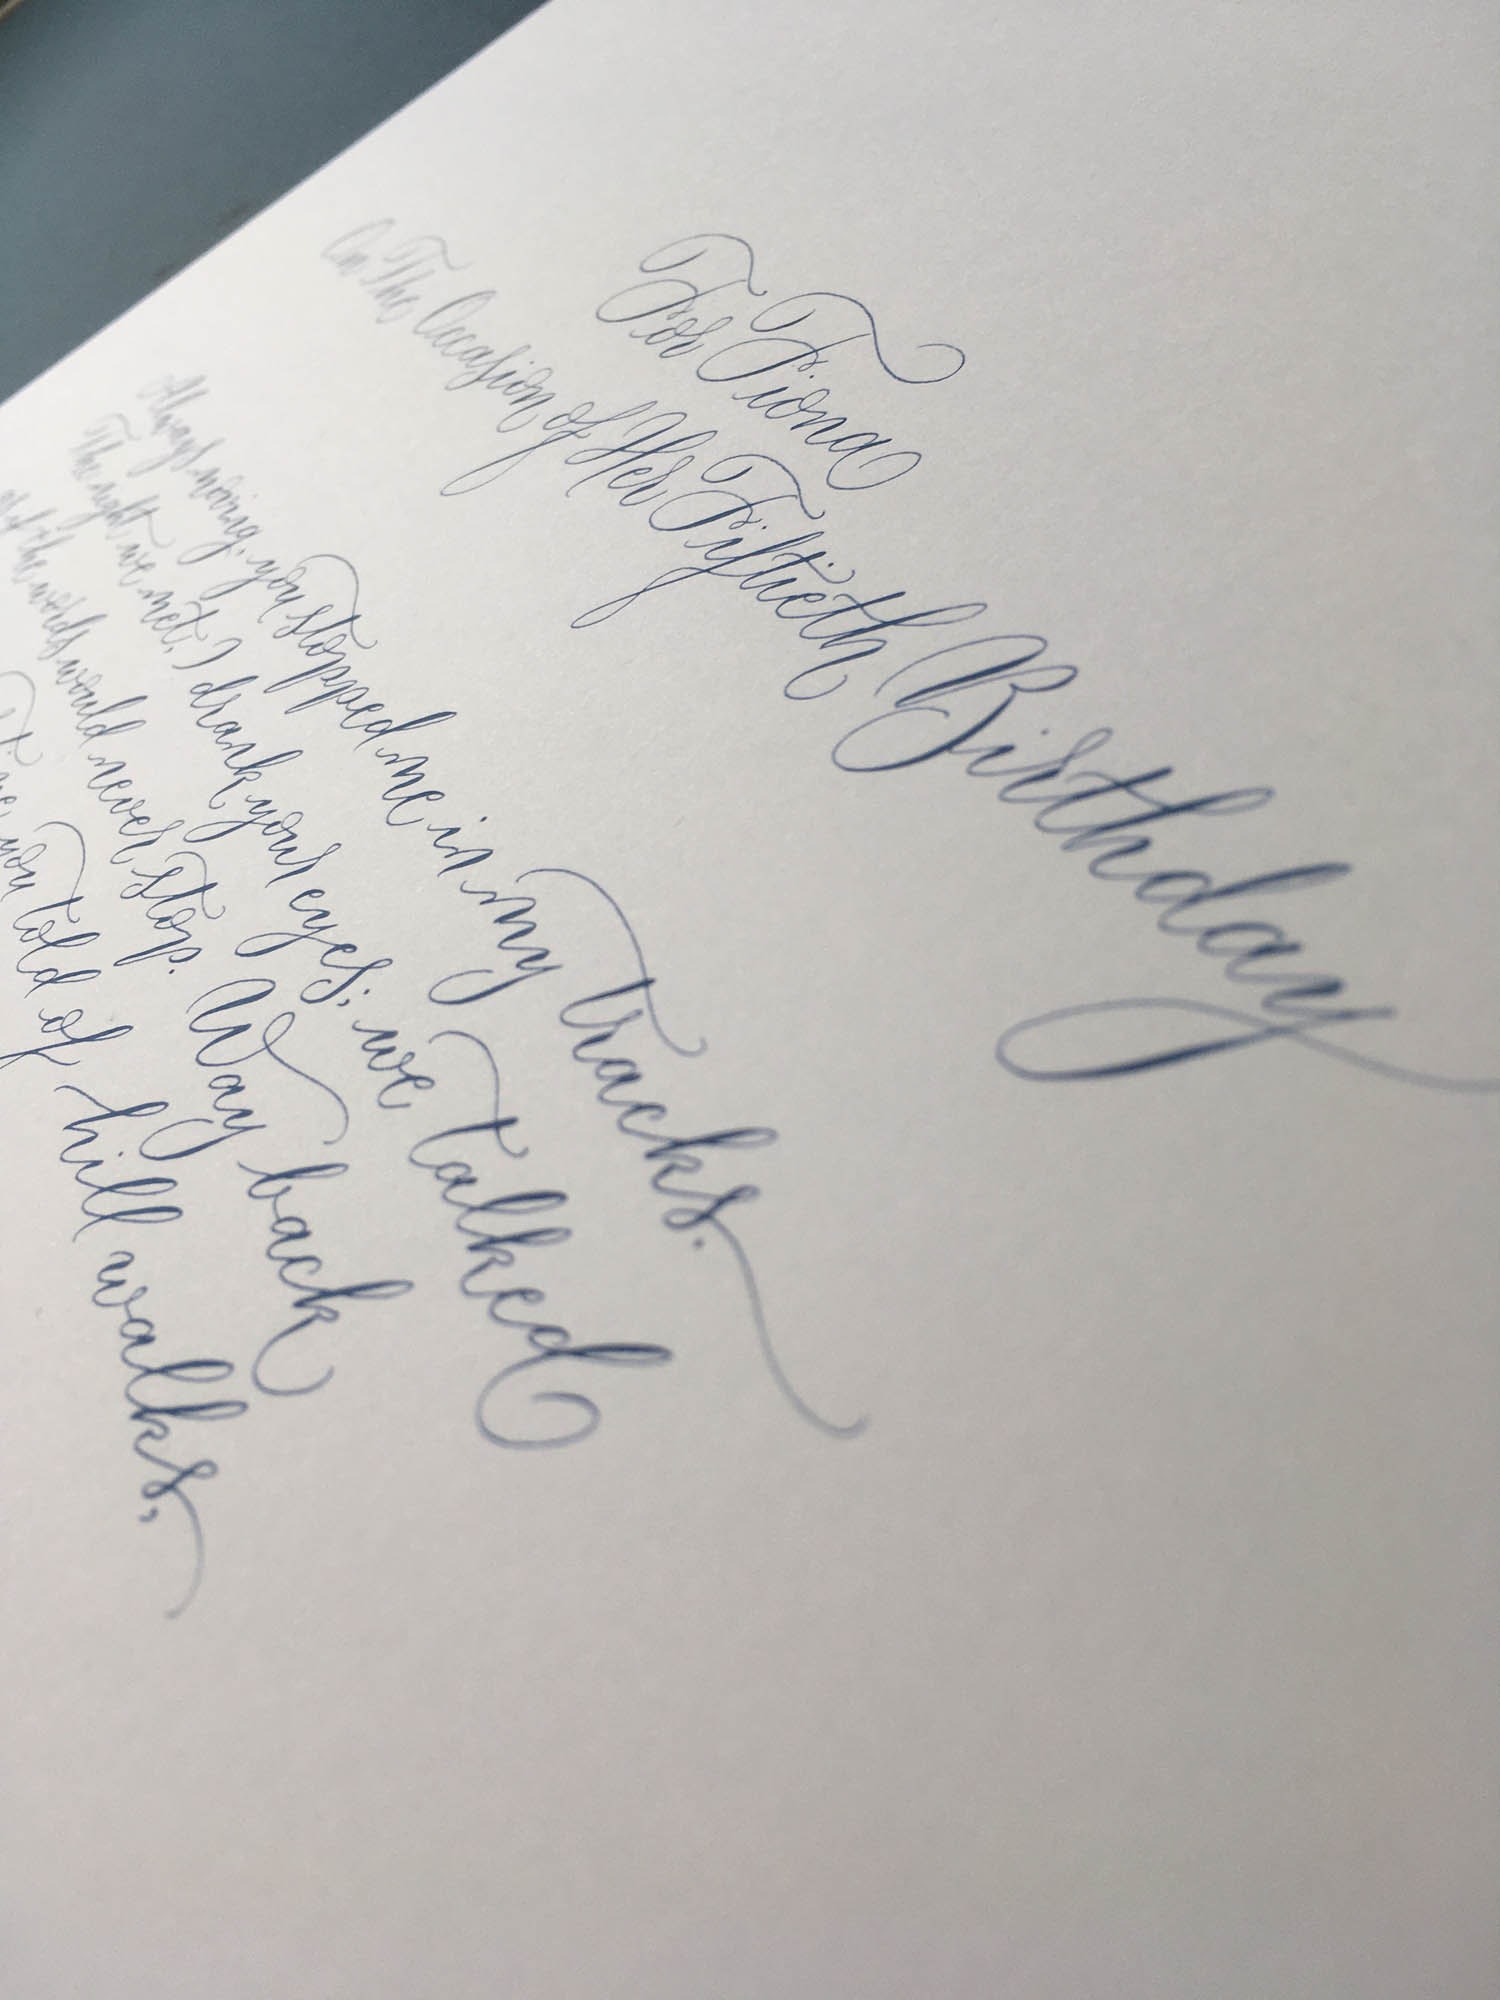 For Fiona
On The Occasion of Her Fiftieth Birthday
Always moving, you stopped me in my tracks.
The night we met, I drank your eyes; we talked
and the words would never stop. Way back
you told of hill walks,